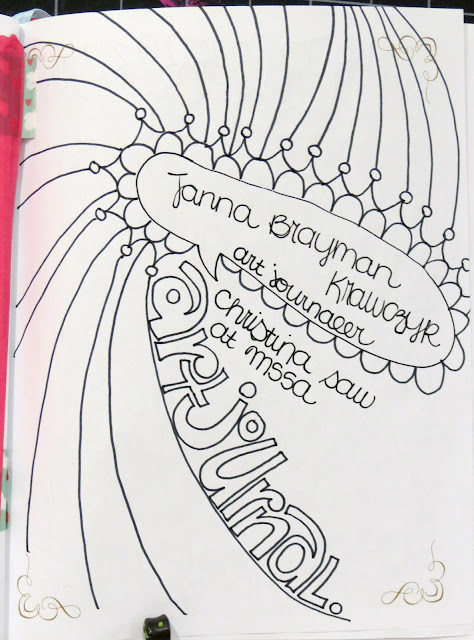 Janna Brayman
Krawczyk
art journaler
Christina saw
at mssa
art journal.